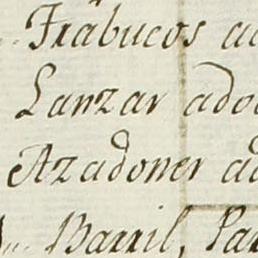 Frabucos a
Lanzar ado
Azadoner ad
Barril, Par